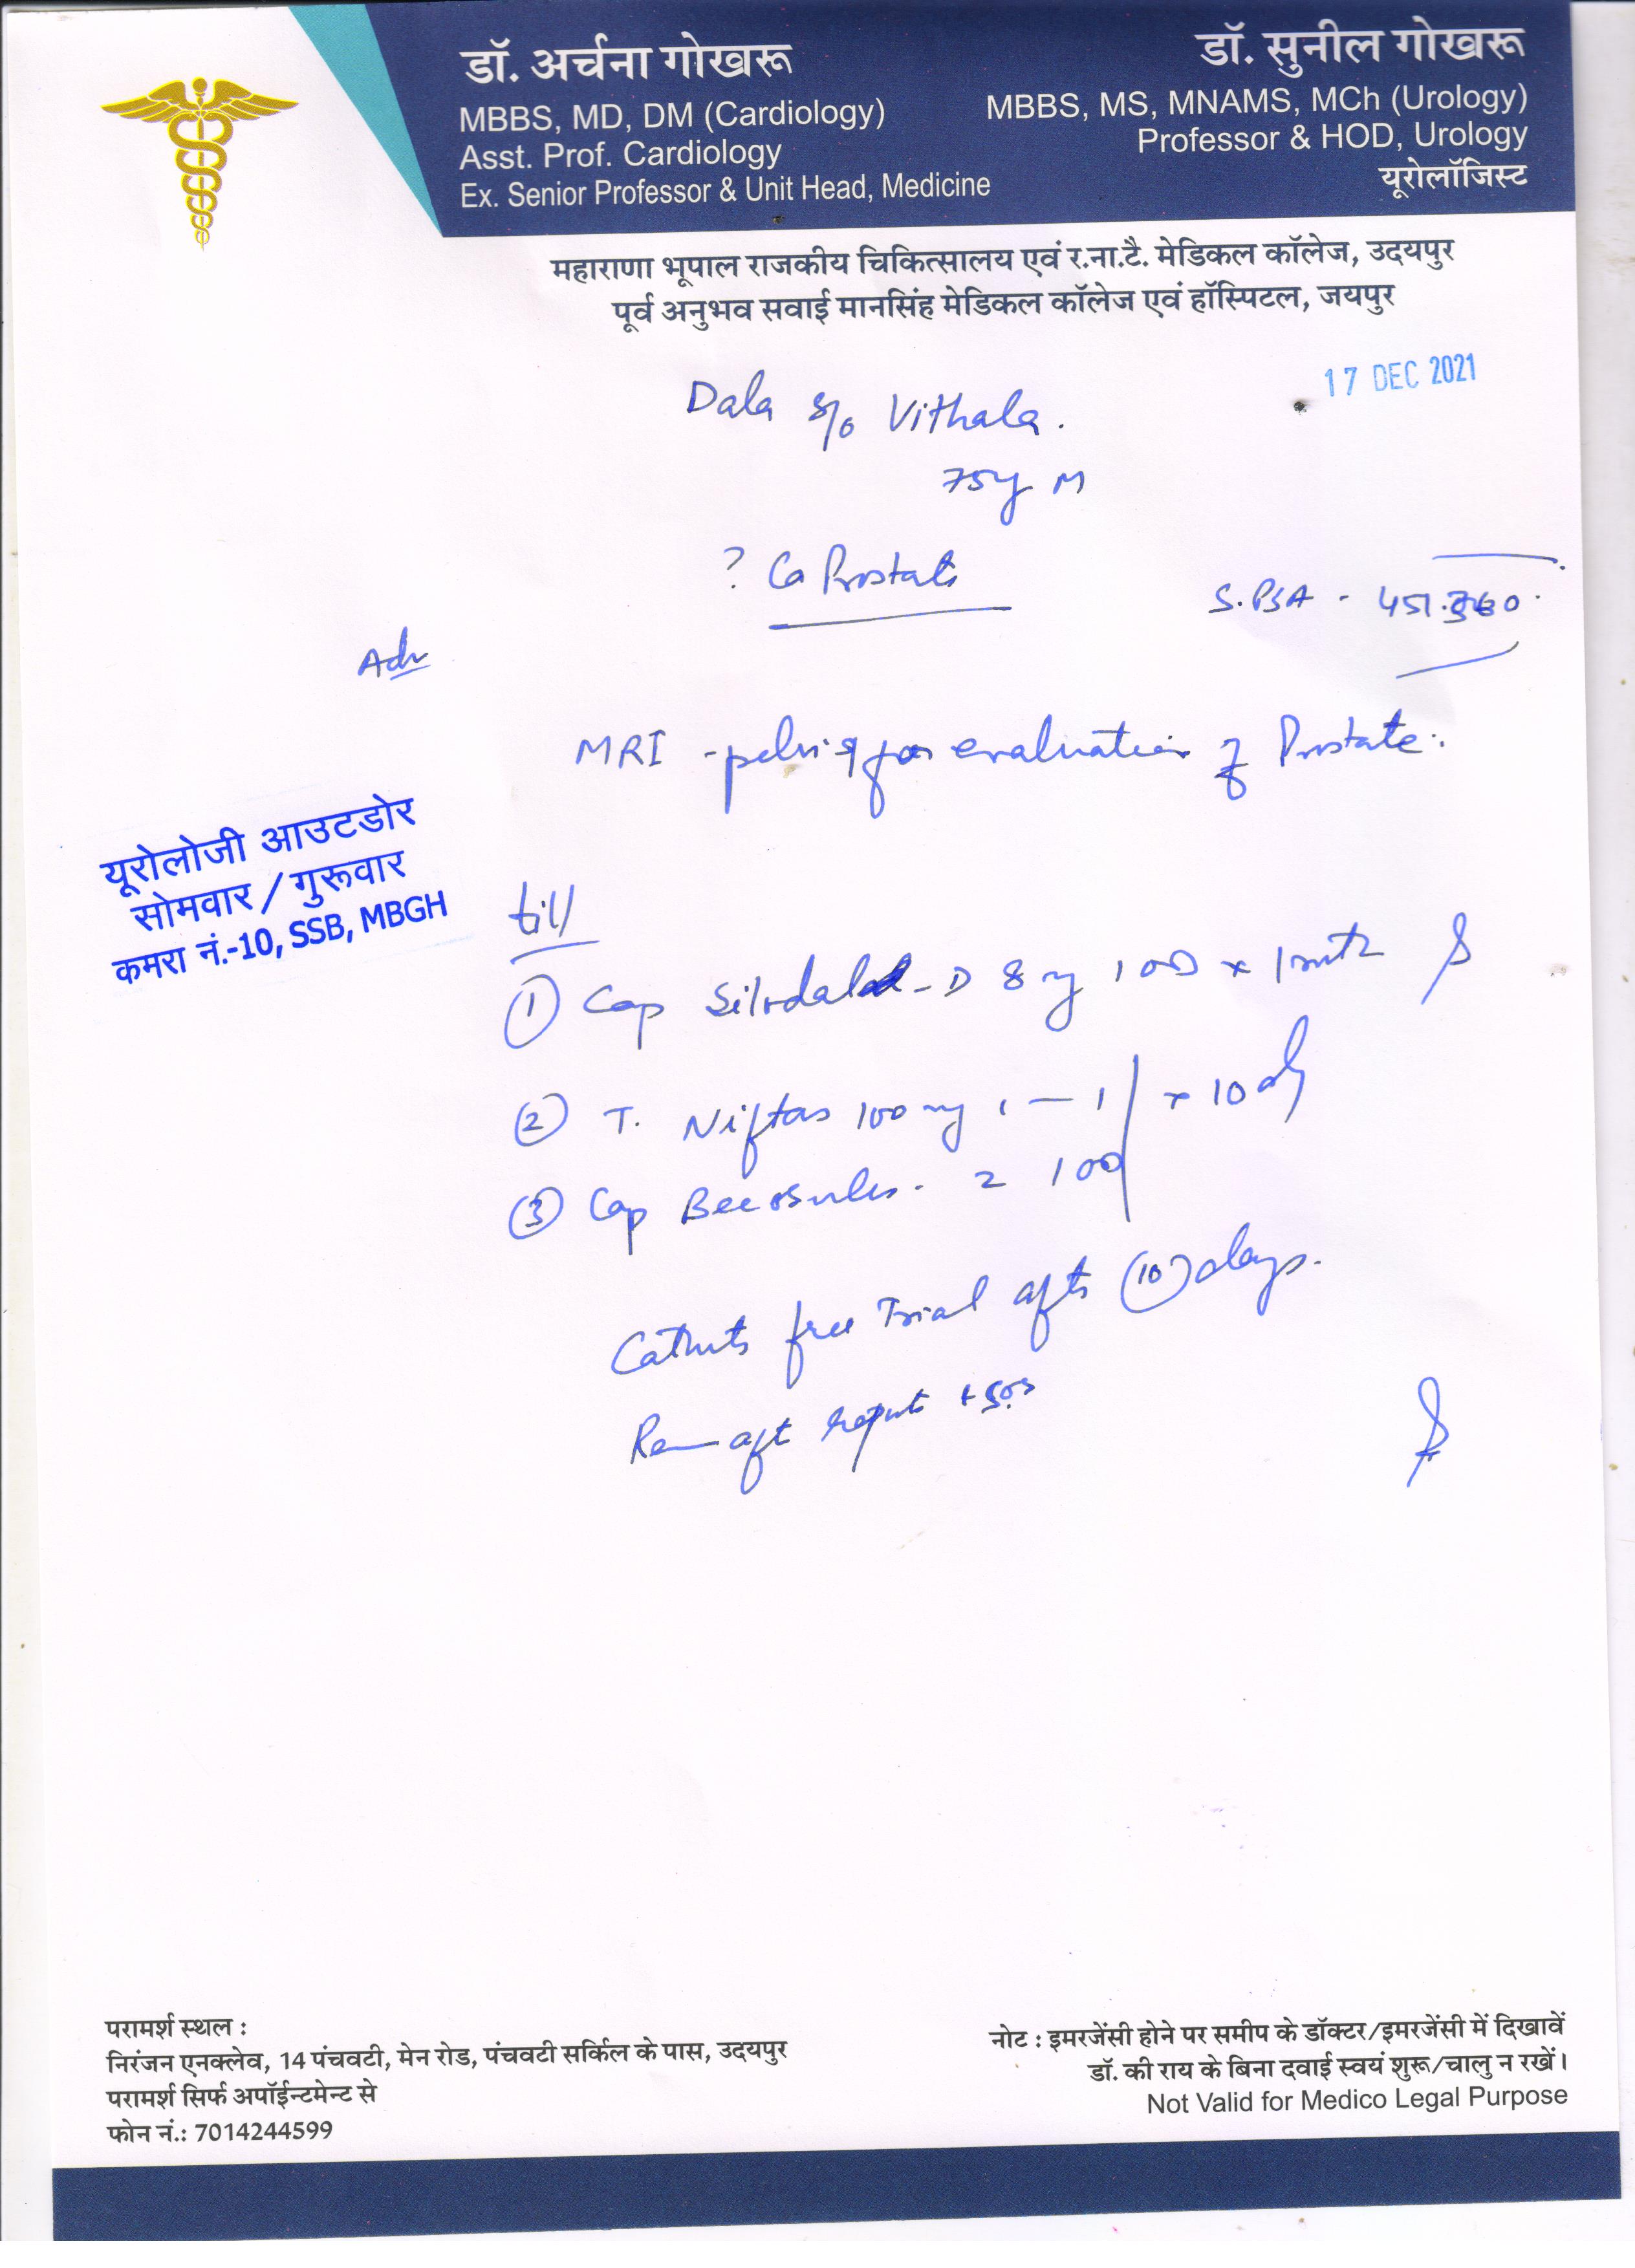 डॉ. अर्चना गोखरू
MBBS, MD, DM (Cardiology)
Asst. Prof. Cardiology
Ex. Senior Professor & Unit Head, Medicine
डॉ. सुनील गोखरू
MBBS, MS, MNAMS, MCh (Urology)
Professor & HOD, Urology
यूरोलॉजिस्ट
महाराणा भूपाल राजकीय चिकित्सालय एवं र.ना.टै. मेडिकल कॉलेज, उदयपुर
पूर्व अनुभव सवाई मानसिंह मेडिकल कॉलेज एवं हॉस्पिटल, जयपुर
17 DEC 2021
Dala s/o Vithala.
75y M
? Ca Prostate
S.PSA - 451.
Adv
MRI - pelvis for evaluation of Prostate.
यूरोलोजी आउटडोर
सोमवार / गुरूवार
कमरा नं.-10, SSB, MBGH
till
① Cap Silodal-D 8 mg 1 OD x 1 mth
② T. Niftas 100 mg 1 — 1 x 10 d
③ Cap Becosules. 2 1 OD
Catheter free Trial after (10) days.
Rev aft reports + sos
परामर्श स्थल :
निरंजन एनक्लेव, 14 पंचवटी, मेन रोड, पंचवटी सर्किल के पास, उदयपुर
परामर्श सिर्फ अपॉईन्टमेन्ट से
फोन नं.: 7014244599
नोट : इमरजेंसी होने पर समीप के डॉक्टर/इमरजेंसी में दिखावें
डॉ. की राय के बिना दवाई स्वयं शुरू/चालु न रखें।
Not Valid for Medico Legal Purpose